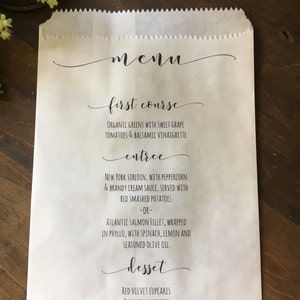 menu
first course
Organic greens with sweet grape
tomatoes & balsamic vinaigrette
entree
New York sirloin, with peppercorn
& brandy cream sauce, served with
red smashed potatoes
-or-
Atlantic salmon fillet, wrapped
in phyllo, with spinach, lemon and
seasoned olive oil
desset
Red velvet cupcakes